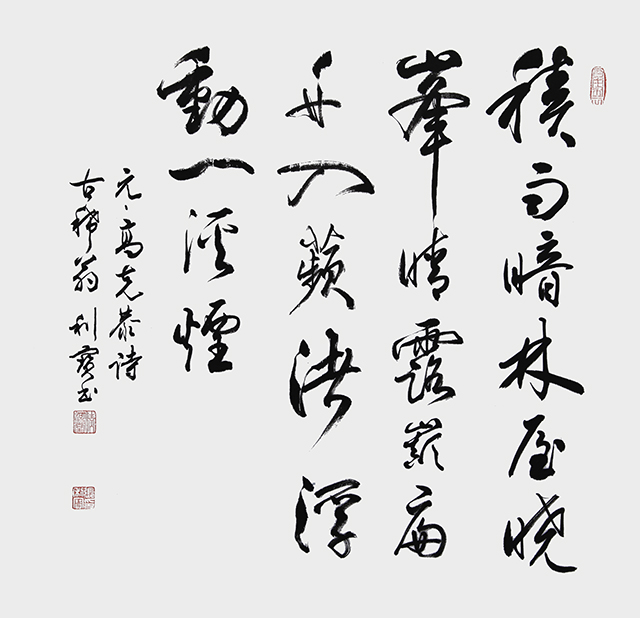 積雨暗林屋曉
峯晴露巔扁
舟入蘋渚浮
動一溪煙
元、高克恭詩
古稀翁利寶书